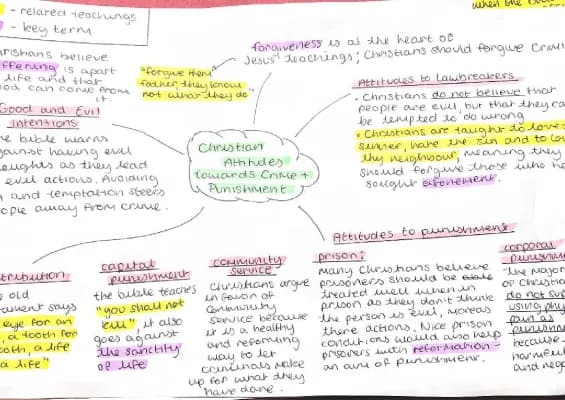 - related teachings
- key term
when the
Christians believe
suffering is apart
life and that
can come from
it.
"forgive them
father, they know
not what they do"
forgiveness is at the heart of
Jesus' teachings; Christians should forgive
Good and Evil
Intentions
the bible warns
against having evil
thoughts as they lead
evil actions. Avoiding
and temptation steers
people away from crime.
Christian
Attitudes
towards Crime +
Punishment
Attitudes to lawbreakers
• Christians do not believe that
people are evil, but that they can
be tempted to do wrong
• Christians are taught to love
sinner, hate the sin and to
thy neighbour, meaning they
should forgive those who
sought atonement.
Attitudes to punishment
retribution
old
testament says
eye for an
, a tooth for
tooth, a life
a life"
capital
punishment
the bible teaches
"you shall not
kill", it also
goes against
the sanctity
of life
community
service
Christians argue
in favor of
community
service because
it is a healthy
and reforming
way to let
criminals make
up for what they
have done.
prison;
many Christians believe
prisoners should be
treated well when in
prison as they don't think
the person is evil, moreas
there actions. Nice prison
conditions would also help
prisoners with reformation -
an aim of punishment.
corporal
punishment
the major
of Christia
do not su
using phy
pain as
punishme
because
harmful
and nega